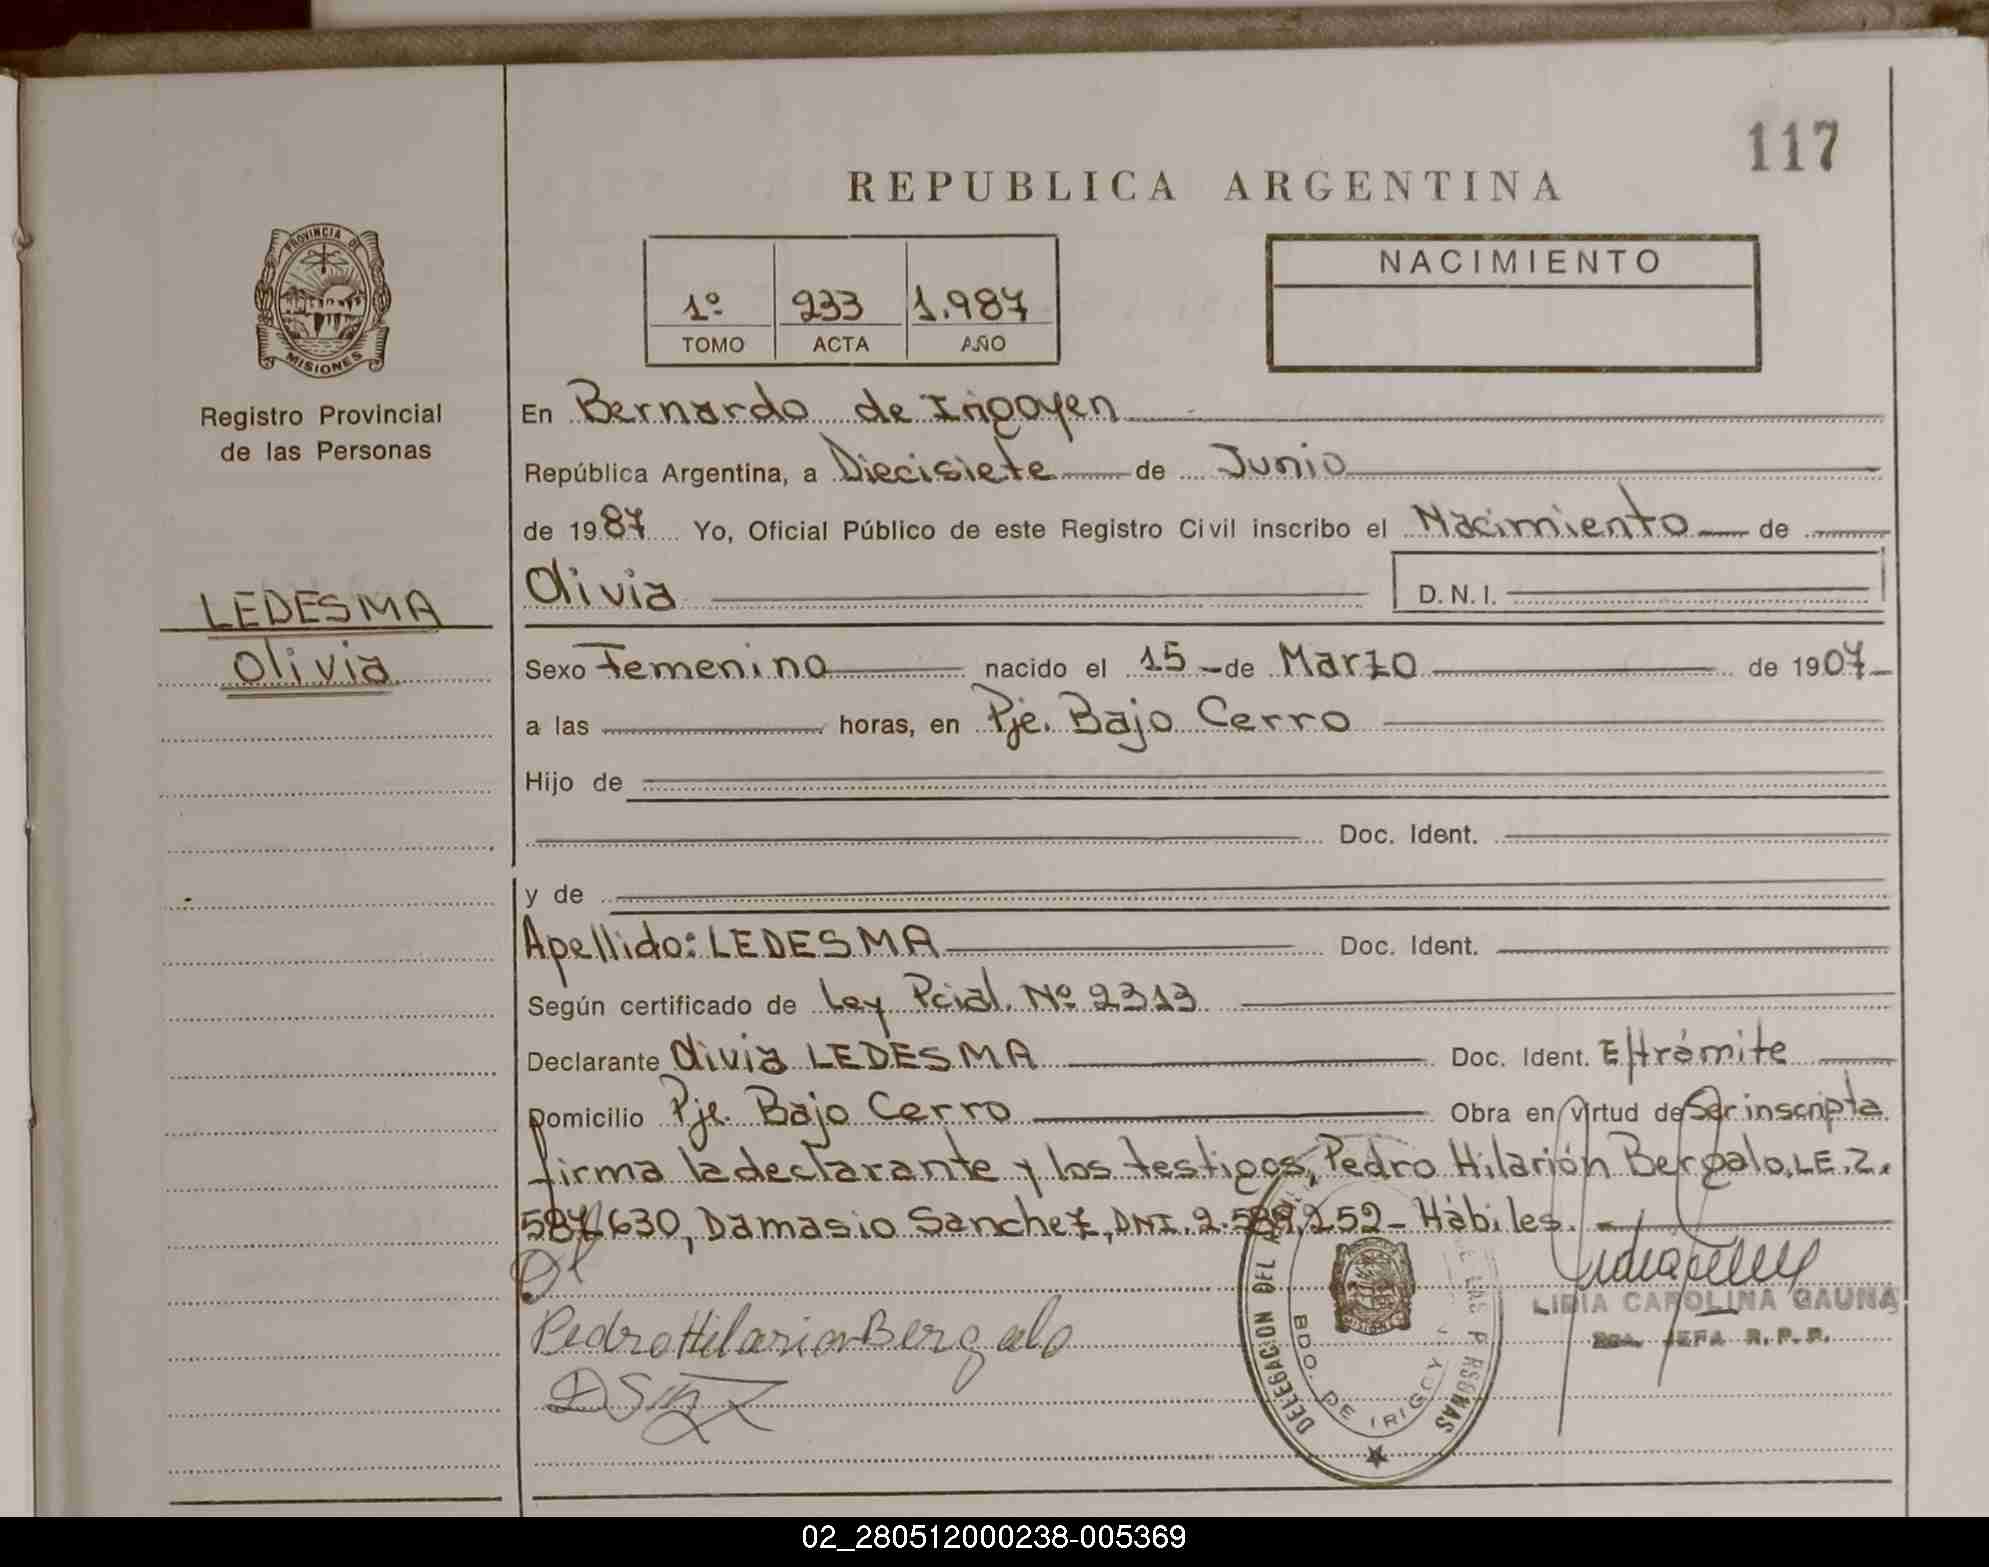 117
REPUBLICA ARGENTINA
PROVINCIA DE
MISIONES
Registro Provincial
de las Personas
1º 233 1.987
TOMO ACTA AÑO
NACIMIENTO
En Bernardo de Irigoyen
República Argentina, a Diecisiete de Junio
de 1987 Yo, Oficial Público de este Registro Civil inscribo el Nacimiento de
Olivia D.N.I.
LEDESMA
Olivia
Sexo Femenino nacido el 15 de Marzo de 1907
a las horas, en Pje. Bajo Cerro
Hijo de
Doc. Ident.
y de
Apellido: LEDESMA Doc. Ident.
Según certificado de Ley Pcial. Nº 2313
Declarante Olivia LEDESMA Doc. Ident. E/trámite
Domicilio Pje. Bajo Cerro Obra en virtud de Ser inscripta
firma la declarante y los testigos, Pedro Hilarión Bergalo, LE. 7.
587.630, Damasio Sanchez, DNI. 2.589.252 - Hábiles.
Pedro Hilarion Bergalo
LIDIA CAROLINA GAUNA
JEFA R. P. P.
DELEGACION DEL
DE LAS PERSONAS
BDO. DE IRIGOY
02_280512000238-005369